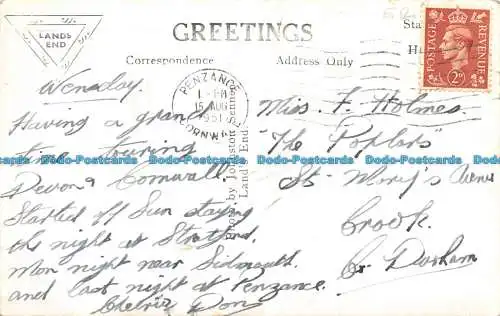 LANDS
END
GREETINGS
Correspondence
Address Only
POSTAGE
REVENUE
2D
PENZANCE
15 AUG
1951
CORNWALL
Land's End.
Wensday.
Having a grand
time touring
Devon & Cornwall.
Started off Sun staying
the night at Stratford.
Mon night near Sidmouth
and last night at Penzance.
Don
Miss F. Holmes
"The Poplars"
St. Mary's Avenue
Crook.
Co Durham
Dodo-Postcards Dodo-Postcards Dodo-Postcards Dodo-Postcards Dodo-Postcards Dodo-Postcards